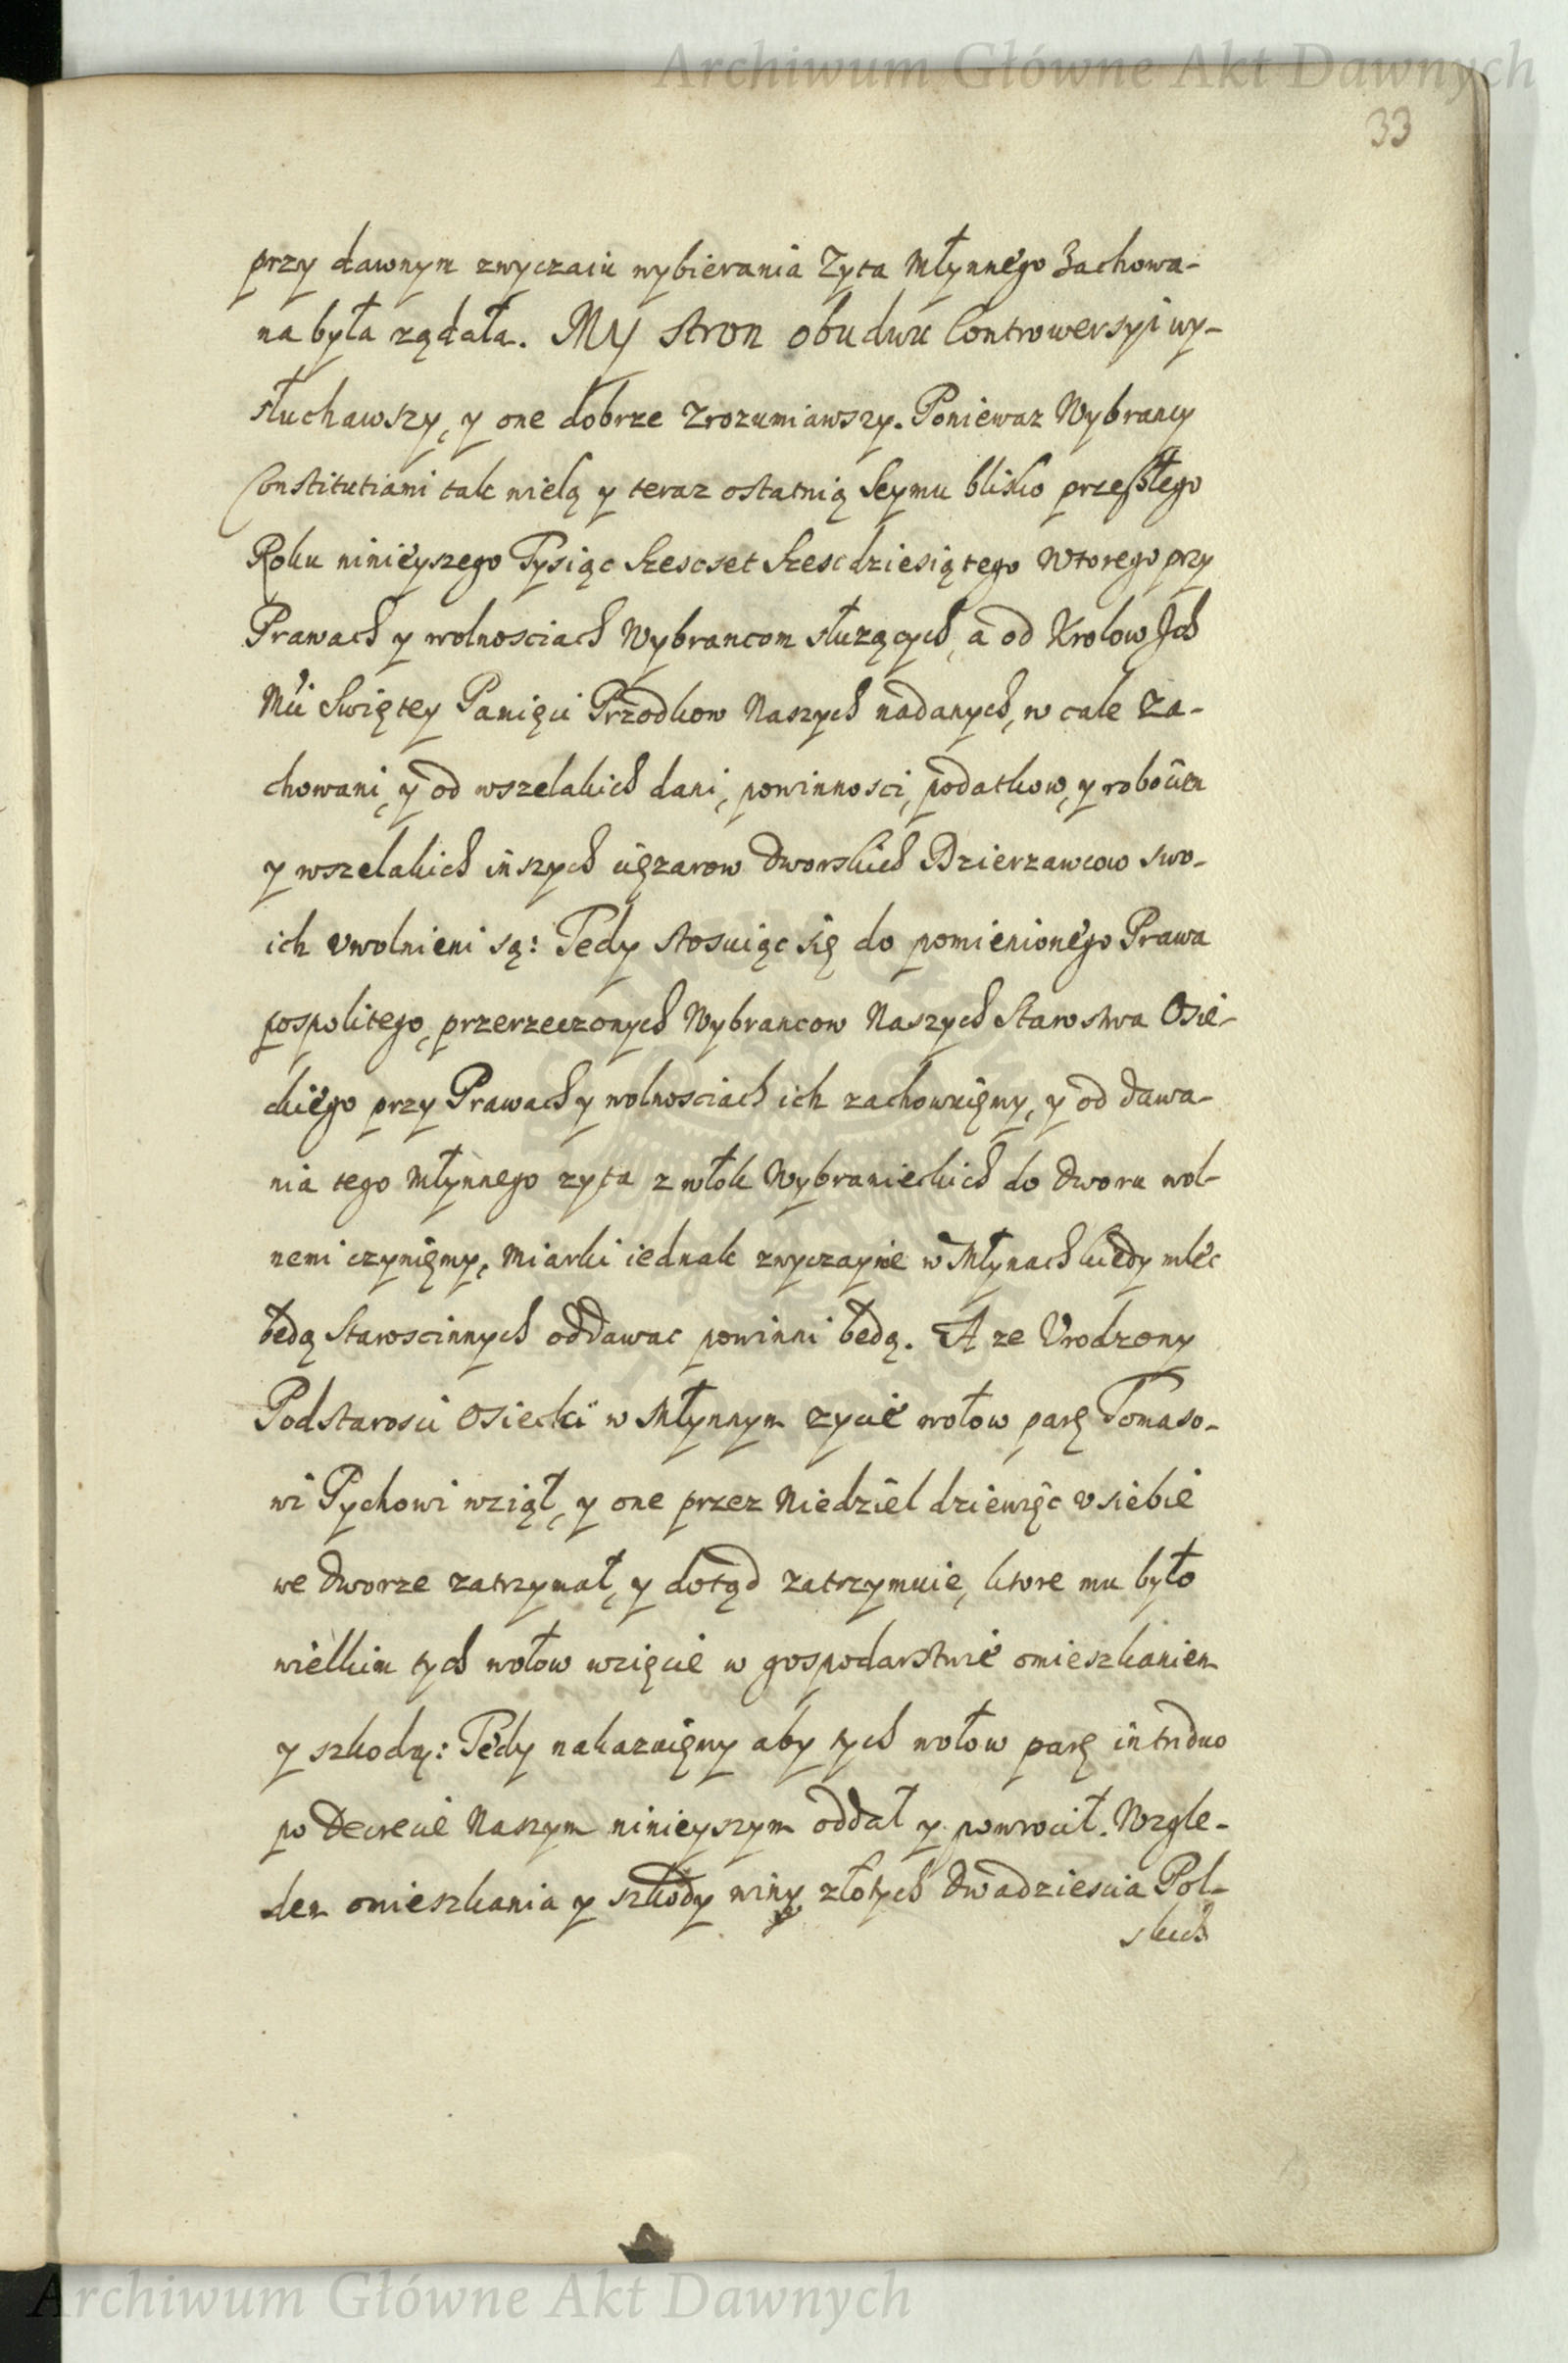 Archiwum Główne Akt Dawnych
33
przy dawnym zwyczaiu wybierania Zyta Młynnego Zachowa-
na była ządała. MY stron obudwu Controwersyi wy-
słuchawszy, y one dobrze zrozumiawszy. Poniewaz Wybrancy
Constitutiami tak wielą y teraz ostatnią Seymu blisko przeszłego
Roku ninieyszego Tysiąc Szescset Szescdziesiątego wtorego przy
Prawach y wolnosciach Wybrancom słuzących, a od Krolow Ich
Mći Swiętey Pamięci Przodkow Naszych nadanych, w cale za-
chowani, y od wszelakich dani, powinnosci, podatkow, y robocizn
y wszelakich inszych cięzarow Dworskich Dzierzawcow swo-
ich vwolnieni są: Tedy stosuiąc się do pomienionego Prawa
pospolitego, przerzeczonych Wybrancow Naszych Starostwa Osie-
ckiego przy Prawach y wolnosciach ich zachowuięmy, y od dawa-
nia tego Młynnego zyta z włok Wybranieckich do Dworu wol-
nemi czynięmy, Miarki iednak zwyczayne w Młynach kiedy mlec
będą Staroscinnych oddawac powinni będą. A ze Vrodzony
Podstarosci Osiecki w Młynnym zycie wołow parę Tomaso-
wi Pychowi wziął, y one przez Niedziel dziewięc v siebie
we Dworze zatrzymał, y dotąd zatrzymuie, ktore mu było
wielkim tych wołow wzięcie w gospodarstwie omieszkaniem
y szkodą: Tedy nakazuięmy aby tych wołow parę in triduo
po Decrecie Naszym ninieyszym oddał y powrocił. Wzglę-
dem omieszkania y szkody winy złotych Dwadziescia Pol-
skich
Archiwum Główne Akt Dawnych